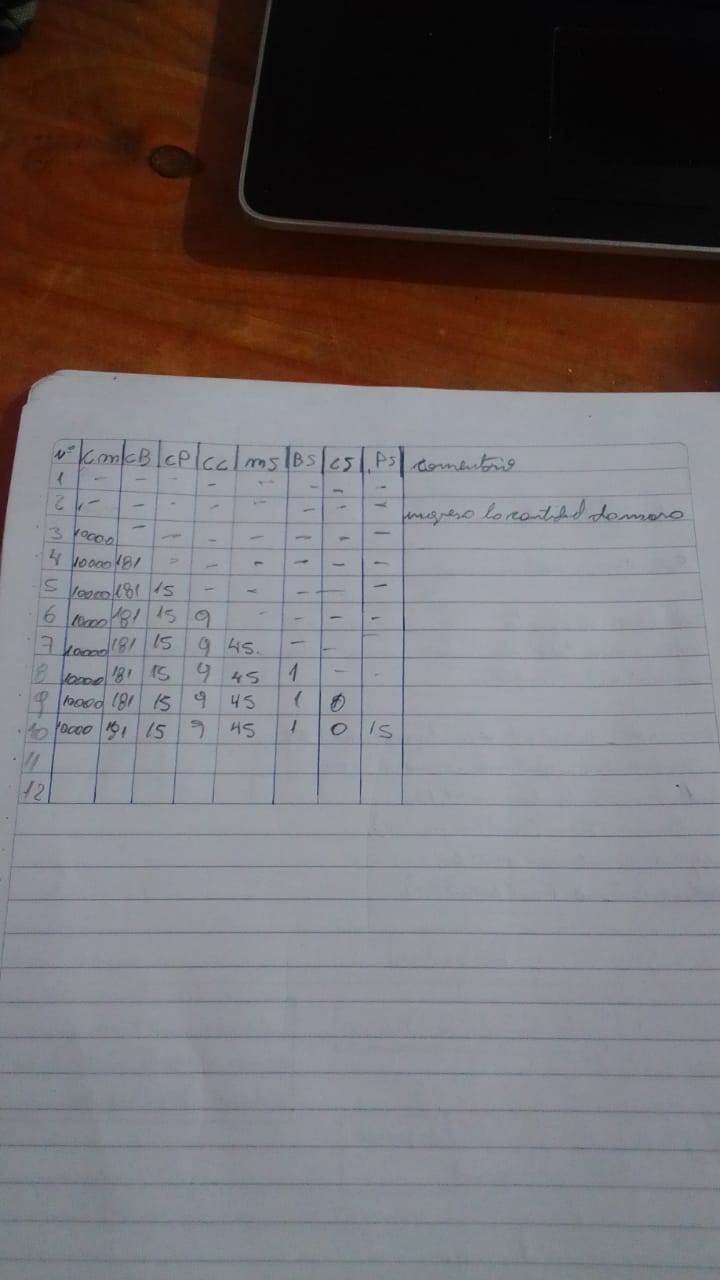 Nº Cm CB CP CC MS BS CS PS comentario
1 - - - - - - - -
2 - - - - - - - - ingreso la cantidad
3 10000 - - - - - - -
4 10000 181 - - - - - -
5 10000 181 15 - - - - -
6 10000 181 15 9 - - - -
7 10000 181 15 9 45 - - -
8 10000 181 15 9 45 1 - -
9 10000 181 15 9 45 1 0
10 10000 181 15 9 45 1 0 15
11
12